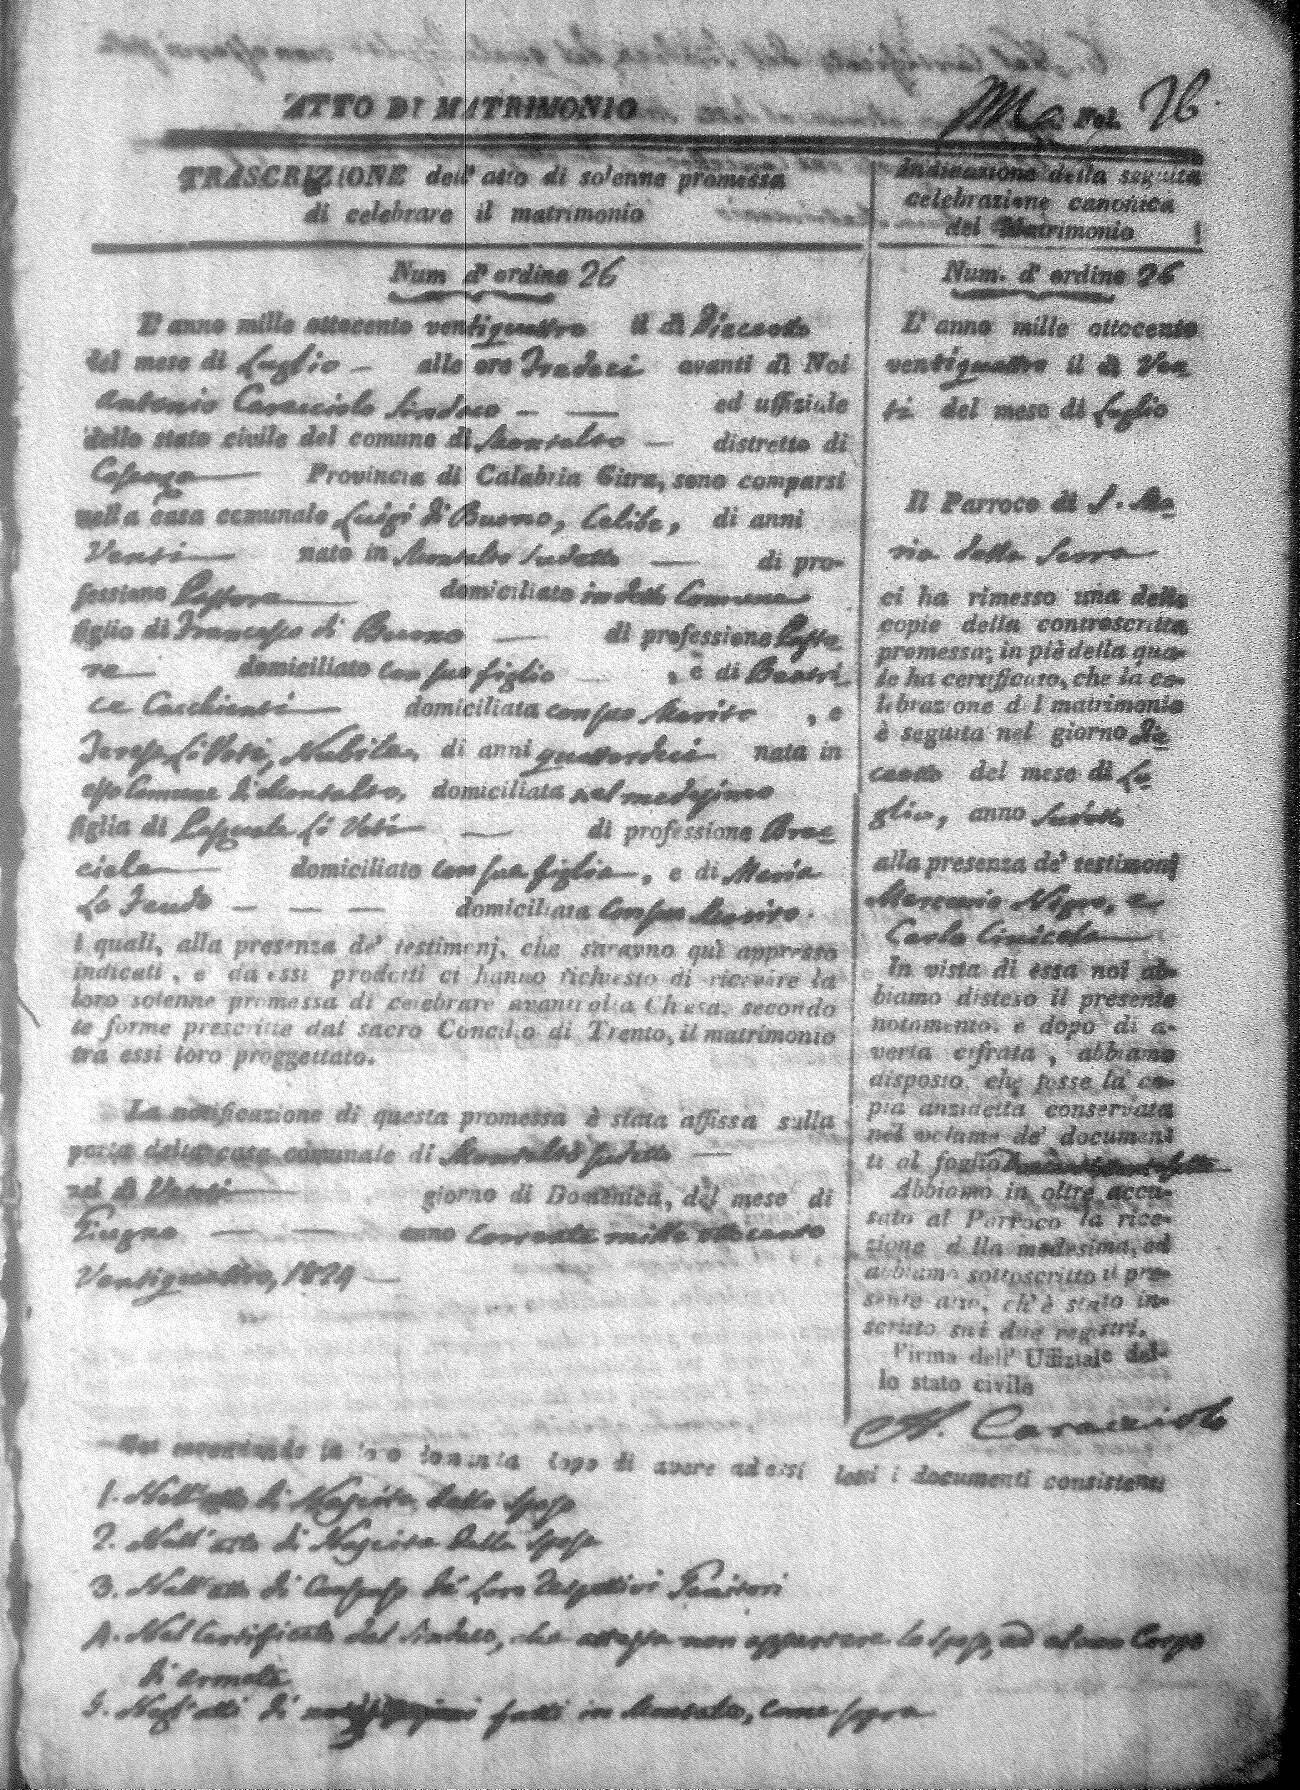 ATTO DI MATRIMONIO
Fol. 26
TRASCRIZIONE dell' atto di solenne promessa
di celebrare il matrimonio
Num d' ordine 26
L' anno mille ottocento ventiquattro il dì Dieceotto
del mese di Luglio — alle ore Tredeci avanti di Noi
Antonio Caracciolo Sindaco — — ed uffiziale
dello stato civile del comune di Montalto — distretto di
Cosenza — Provincia di Calabria Citra, sono comparsi
nella casa comunale Luigi di Buono, Celibe, di anni
Venti — nato in Montalto sudetto — di pro-
fessione Pastore — domiciliato in detto Comune
figlio di Francesco di Buono — di professione Pasto-
re — domiciliato con suo figlio — , e di Beatri-
ce — domiciliata con suo Marito , e
Teresa Li Voti, Nubile, di anni quattordeci nata in
esso Comune di Montalto, domiciliata nel medesimo
figlia di Pasquale Li Voti — di professione Brac-
ciale — domiciliato con sua figlia, e di Maria
Lo — — — domiciliata con suo Marito.
I quali, alla presenza de' testimonj, che saranno quì appresso
indicati, e da essi prodotti ci hanno richiesto di ricevere la
loro solenne promessa di celebrare avanti alla Chiesa, secondo
le forme prescritte dal sacro Concilio di Trento, il matrimonio
tra essi loro proggettato.
La notificazione di questa promessa è stata affissa sulla
porta della casa comunale di Montalto sudetto —
nel dì Venti — giorno di Domenica, del mese di
Giugno — — anno corrente mille ottocento
Ventiquattro, 1824 —
Indicazione della seguita
celebrazione canonica
del Matrimonio
Num. d' ordine 26
L' anno mille ottocento
ventiquattro il dì Ven-
ti del mese di Luglio
Il Parroco di S. Ma-
ria della Serra —
ci ha rimesso una delle
copie della controscritta
promessa; in piè della qua-
le ha certificato, che la ce-
lebrazione del matrimonio
è seguita nel giorno Die-
ceotto del mese di Lu-
glio, anno sudetto
alla presenza de' testimonj
Mercurio Nigro, e
Carlo —
In vista di essa noi ab-
biamo disteso il presente
notamento, e dopo di a-
verla cifrata, abbiamo
disposto, che fosse la co-
pia anzidetta conservata
nel volume de' documen-
ti al foglio
Abbiamo in oltre accu-
sato al Parroco la rice-
zione della medesima, ed
abbiamo sottoscritto il pre-
sente atto, ch' è stato in-
scritto sui due registri.
Firma dell' Uffiziale del-
lo stato civile
A. Caracciolo
Noi secondando la loro domanda dopo di avere ad essi letti i documenti consistenti
1. Nell'atto di Nascita dello sposo
2. Nell'atto di Nascita della sposa
3. Nell'atto di Consenso de' loro rispettivi Genitori
4. Nel Certificato del Sindaco, che attesta non appartenere lo sposo ad alcun Corpo
di armata
5. Negl'atti di fatti in Montalto, come sopra